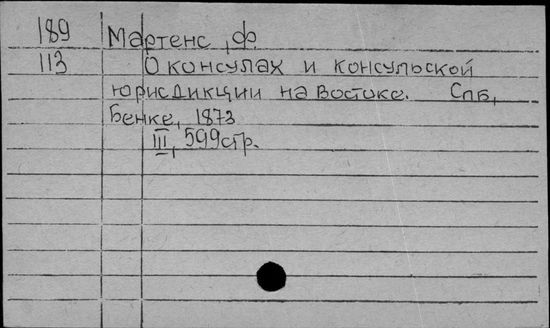 189 Мартенс, Ф.
113 О консулах и консульской
юрисдикции на Востоке. Спб,
Бенке, 1873
III, 599 стр.